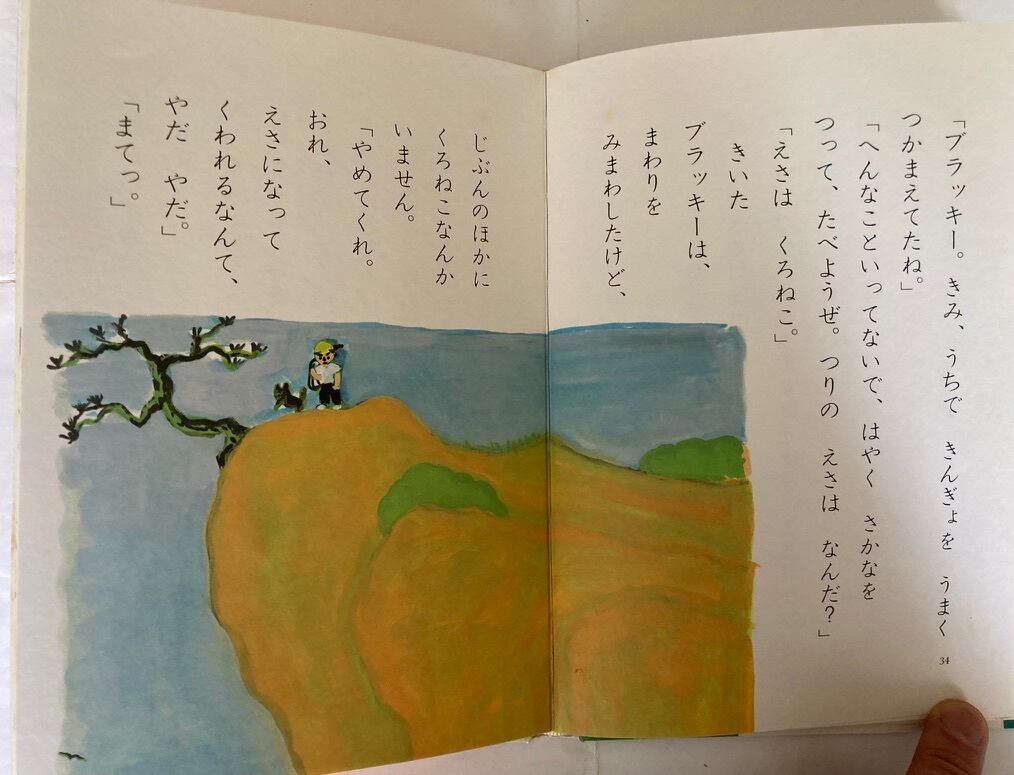 「ブラッキー。きみ、うちで　きんぎょを　うまく
つかまえてたね。」
「へんなこといってないで、はやく　さかなを
つって、たべようぜ。つりの　えさは　なんだ？」
「えさは　くろねこ。」
きいた
ブラッキーは、
まわりを
みまわしたけど、
じぶんのほかに
くろねこなんか
いません。
「やめてくれ。
おれ、
えさになって
くわれるなんて、
やだ　やだ。」
「まてっ。」
34